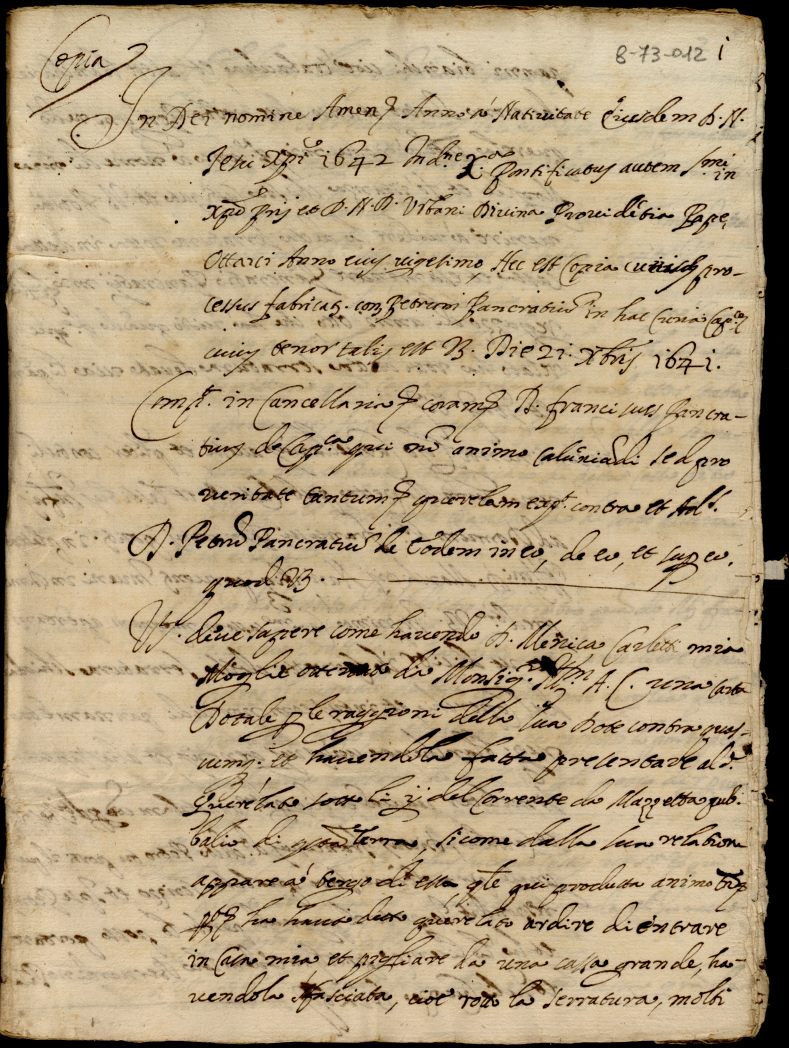 Copia
8-73-012 i
In Dei nomine Amen Anno à Nativitate eiusdem D. N.
Jesu Xpi 1642 Ind.ne X.a Pontificatus autem S.mi in
Xpo Pris et D. N. D. Urbani Divina Providetia Pape
Ottavi Anno eius vigesimo, Hec est Copia pro-
cessus fabricat. con. Petrum Pancratiu in hac Curia
cuius tenor talis est V3. Die 21. Xbris 1641.
Comp.t in Cancellaria coram D. franciscus Pancra-
tius de qui no animo caluniadi sed pro
veritate tantum querelam exp.t contra et Ad.s
D. Petru Pancratiu de eodem in eo, de eo, et sup eo,
quod V3.
V.S. deve sapere come havendo D. Menica Carletti mia
Moglie ottenuto da Monsig.r A. C. una Carta
Dotale p le raggioni della sua Dote contra quos-
cumq. et havendola fatta presentare al d.
Querelato sotto li ij del Corrente da Mazzetta pub.
balio di questa Terra, sicome dalla sua relatione
appare à tergo di essa q.le qui produsse animo
ha hauto detto querelato ardire di entrare
in Casa mia et pigliare da una cassa grande, ha-
vendola sfasciata, cioè rotta la serratura, molti